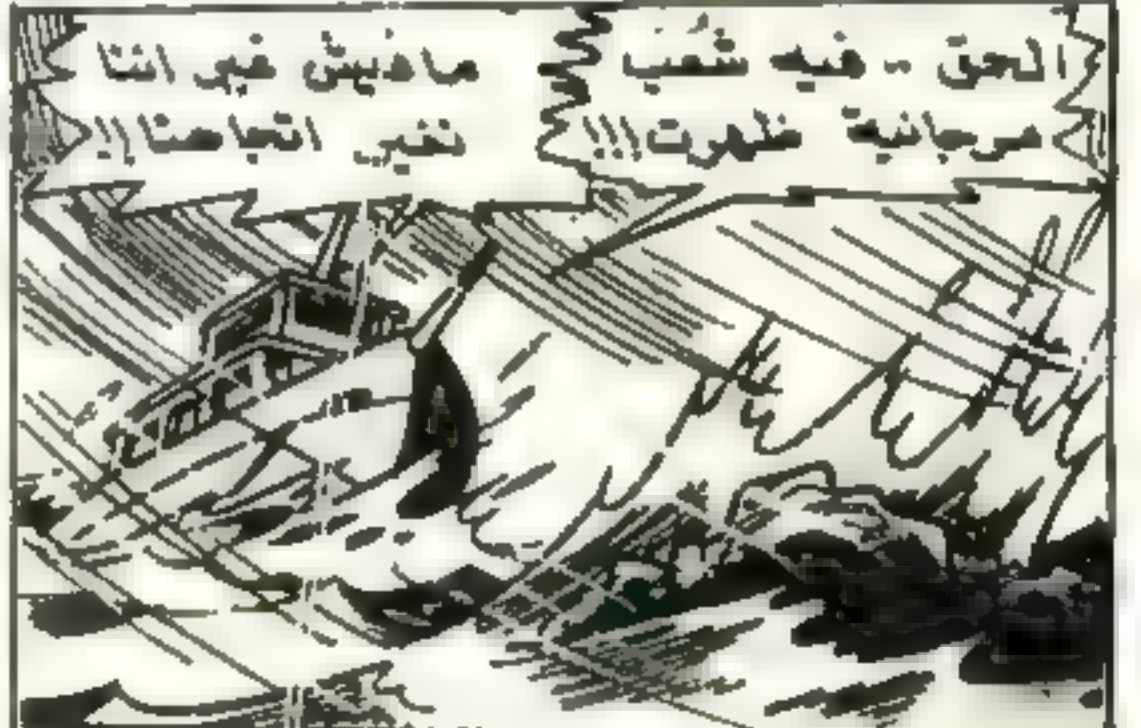 الحق - فيه شعب
مرجانية ظهرت!!!
مافيش فى اننا
نغير اتجاهنا!!